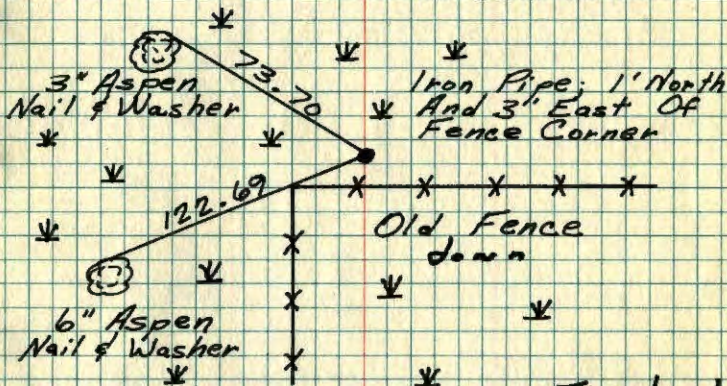 73.70
3" Aspen
Nail & Washer
Iron Pipe; 1' North
And 3' East Of
Fence Corner
122.69
Old Fence
down
6" Aspen
Nail & Washer